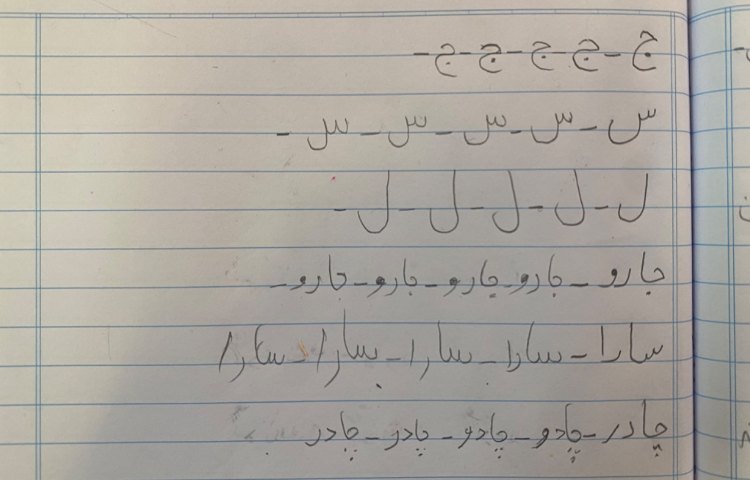 ج - ج - ج - ج - ج -
س - س - س - س - س -
ل - ل - ل - ل - ل -
جارو - جارو - جارو - جارو - جارو -
سارا - سارا - سارا - سارا - سارا
چادر - چادو - چادو - چادر - چادر